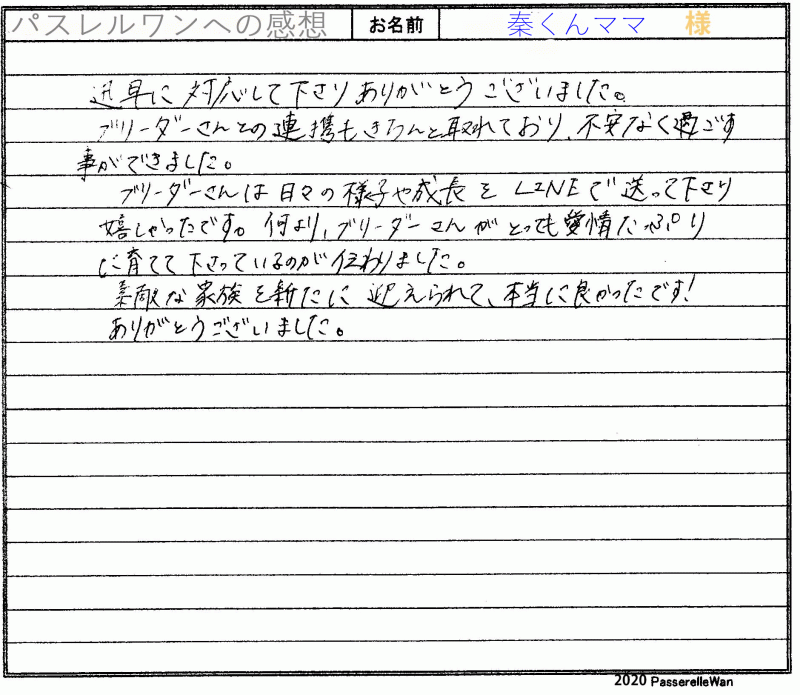 パスレルワンへの感想 お名前 秦くんママ 様
迅早に対応して下さりありがとうございました。
ブリーダーさんとの連携もきちんと取れており、不安なく過ごす
事ができました。
ブリーダーさんは日々の様子や成長をLINEで送って下さり
嬉しかったです。何より、ブリーダーさんがとっても愛情たっぷり
に育てて下さっているのが伝わりました。
素敵な家族を新たに迎えられて、本当に良かったです!
ありがとうございました。
2020 PasserelleWan